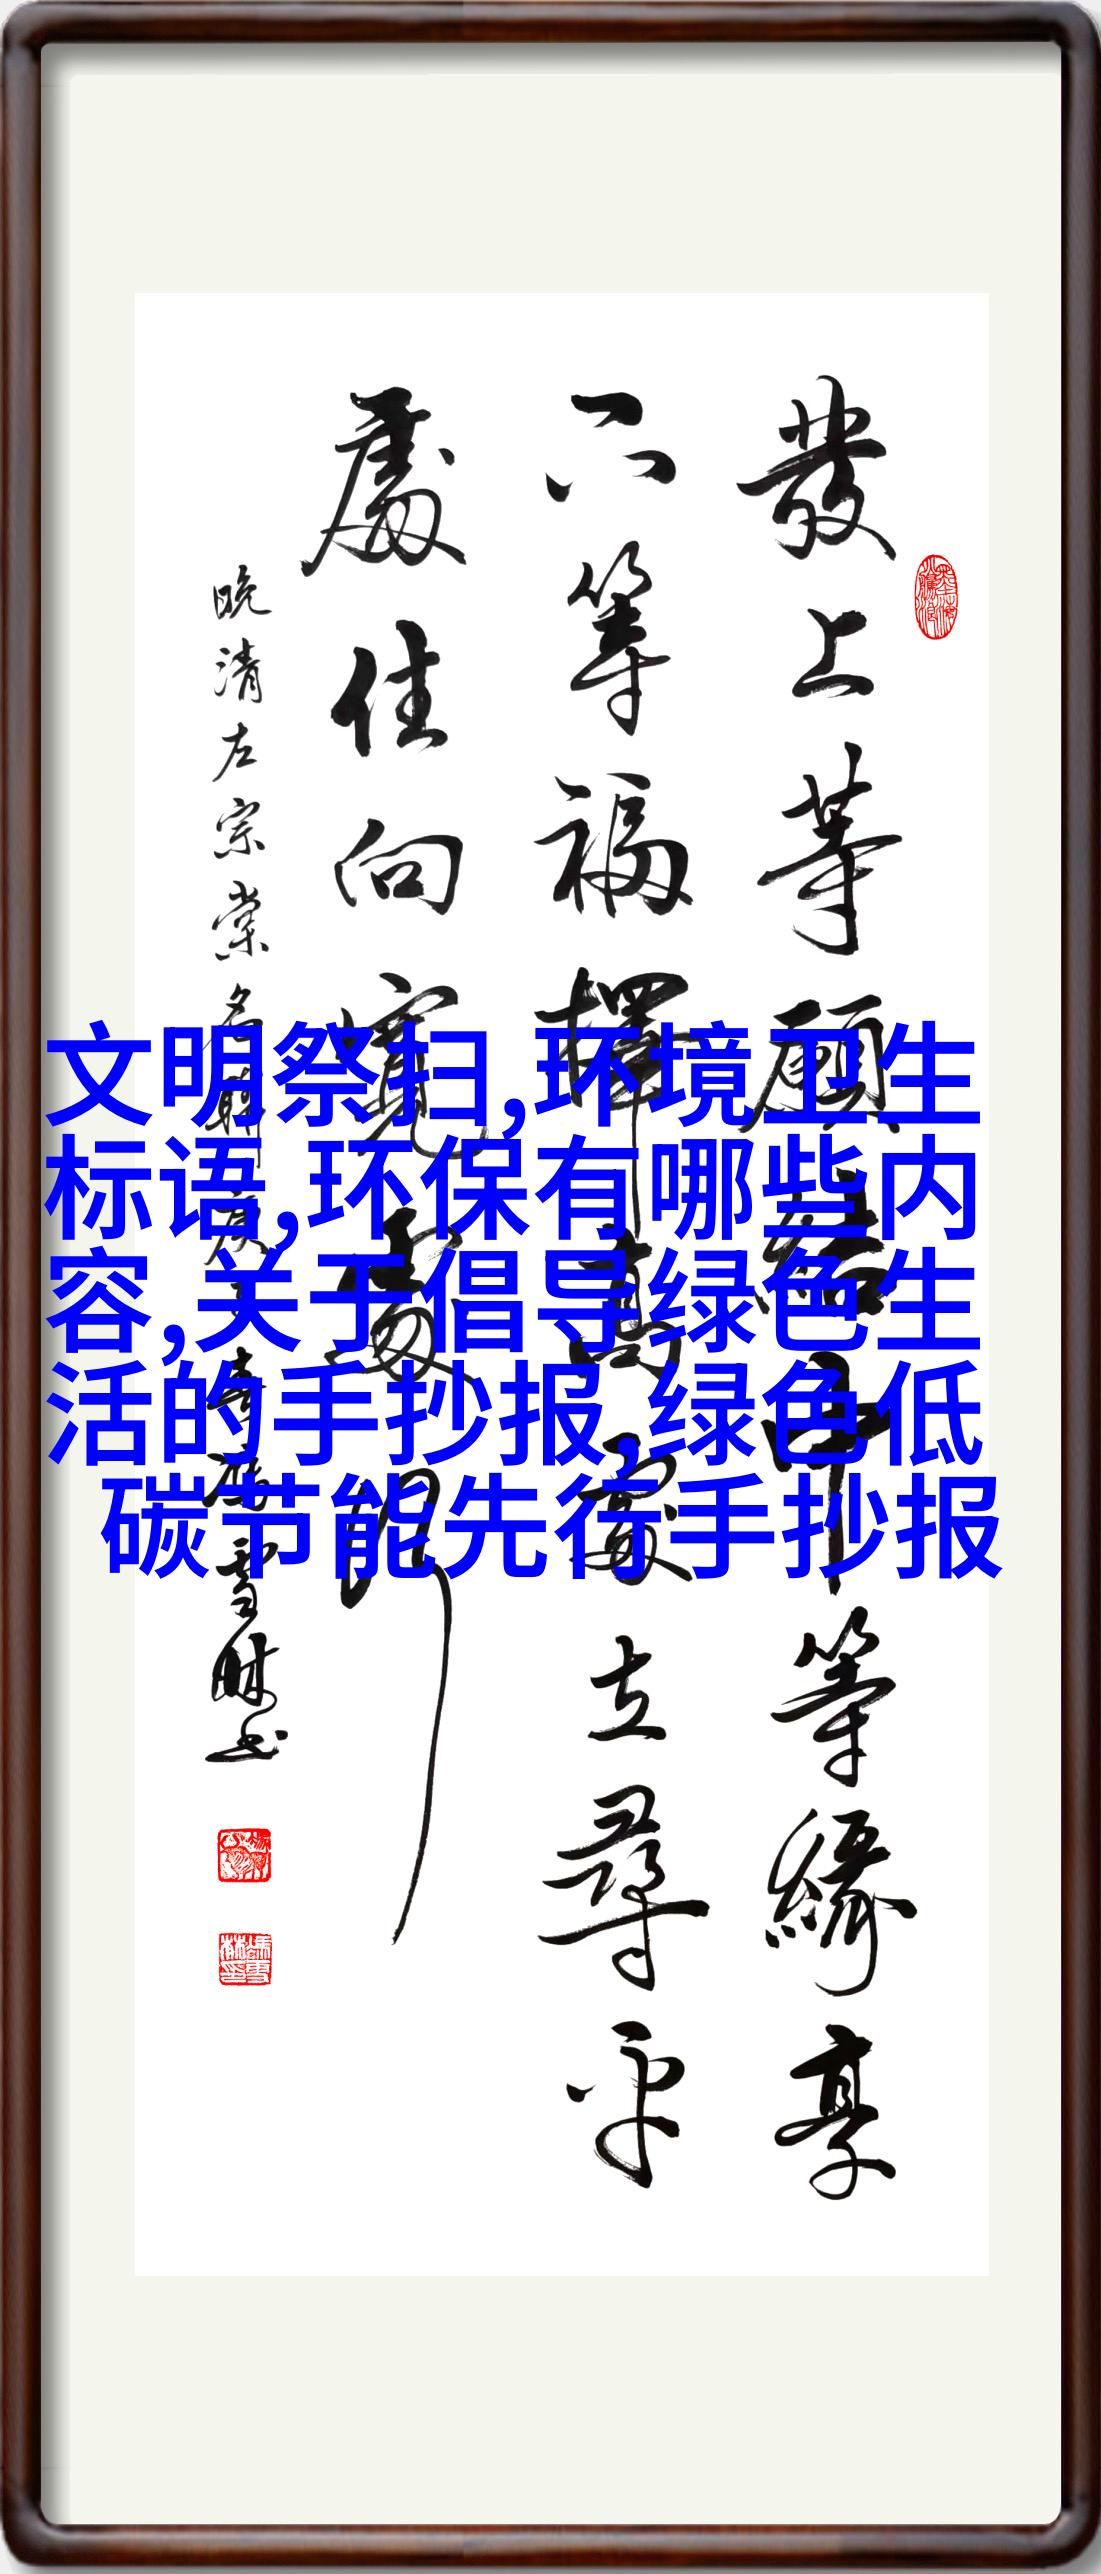 發上等願結中等緣享
下等福擇高處立尋平
處住向寬處行
晚清左宗棠名聯
文明祭扫,环境卫生
标语,环保有哪些内
容,关于倡导绿色生
活的手抄报,绿色低
碳节能先行手抄报